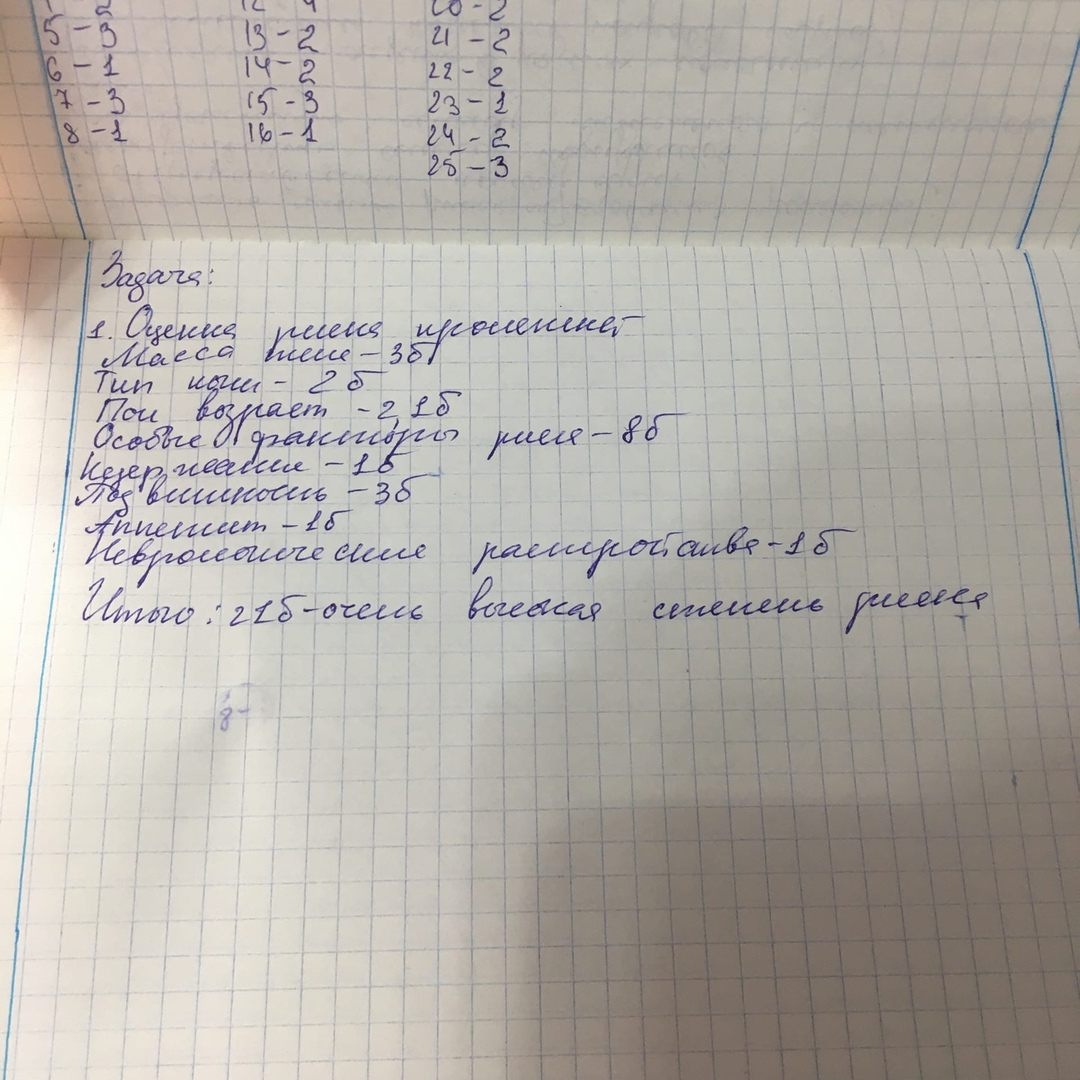 5 - 3
6 - 1
7 - 3
8 - 1
13 - 2
14 - 2
15 - 3
16 - 1
20 - 2
21 - 2
22 - 2
23 - 1
24 - 2
25 - 3
Задача:
1. Оценка риска пролежней
Масса тела - 3б
Тип кожи - 2б
Пол возраст - 2,1б
Особые факторы риска - 8б
Недержание - 1б
Подвижность - 3б
Аппетит - 1б
Неврологические расстройства - 1б
Итого: 21б - очень высокая степень риска
8 -